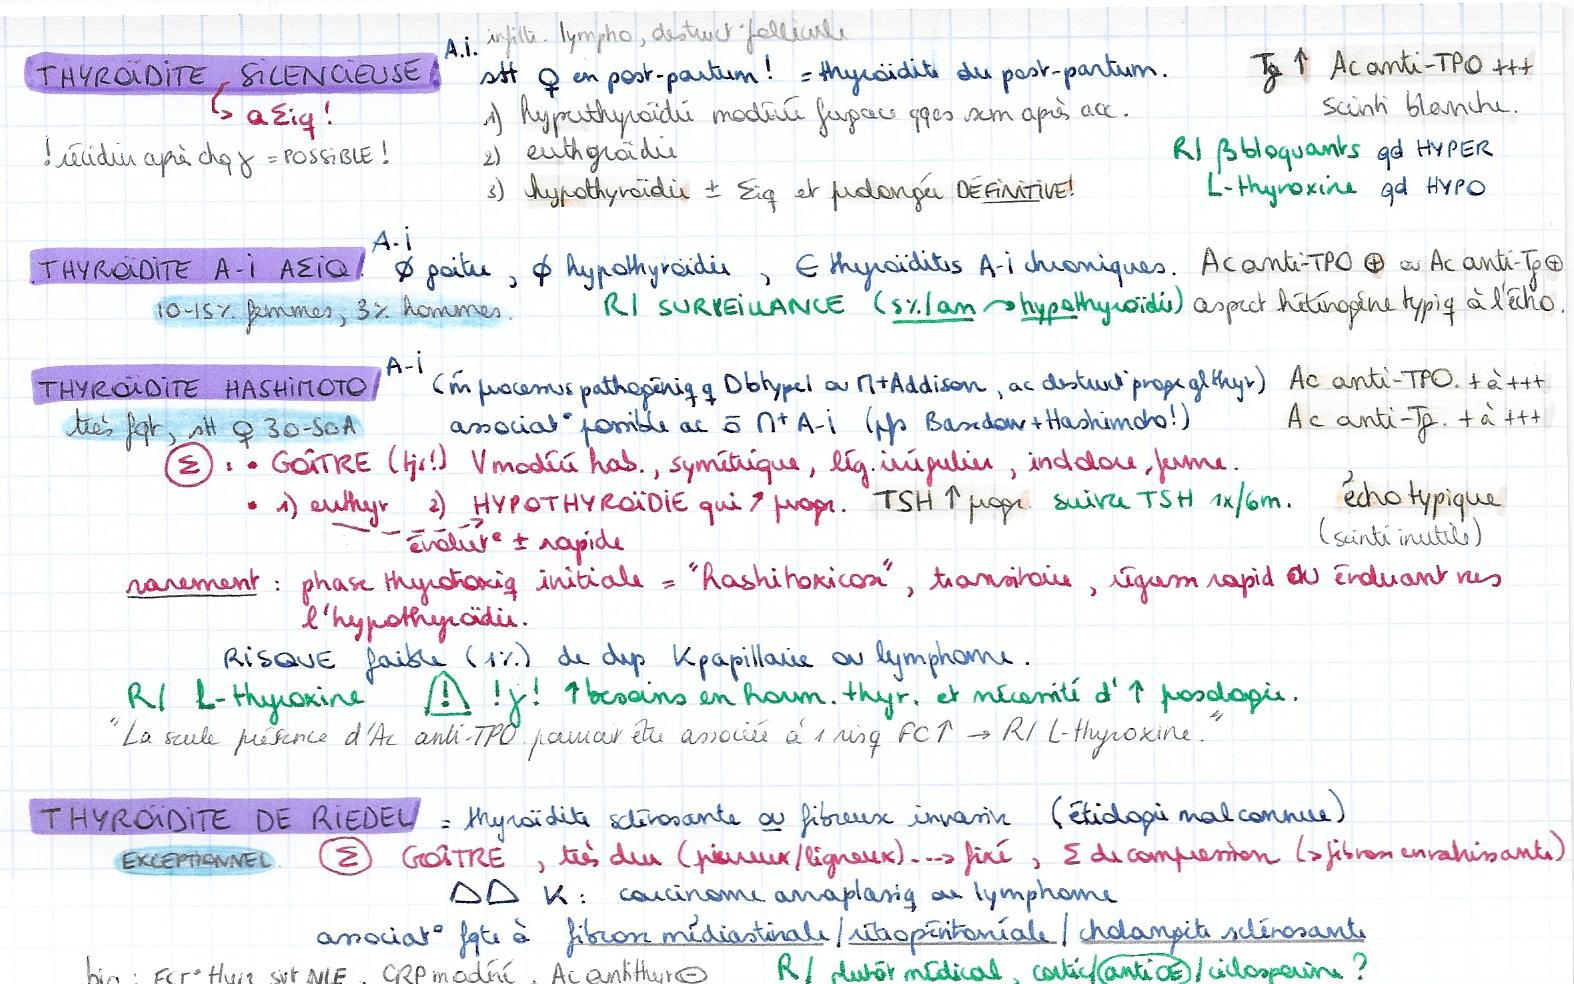 A.i. infiltr. lympho, destruct° follicule
THYROÏDITE SILENCIEUSE stt ♀ en post-partum ! = thyroïdite du post-partum. Tg ↑ Ac anti-TPO +++
↳ aΣiq ! 1) hyperthyroïdie modérée fugace qqes sem après acc. scinti blanche.
! récidive après chq γ = POSSIBLE ! 2) euthyroïdie R/ βbloquants qd HYPER
3) hypothyroïdie ± Σiq et prolongée DÉFINITIVE! L-thyroxine qd HYPO
THYROÏDITE A-i AΣiQ A-i ∅ goitre, ∅ hypothyroïdie, ∈ thyroïdites A-i chroniques. Ac anti-TPO ⊕ ou Ac anti-Tg ⊕
10-15% femmes, 3% hommes. R/ SURVEILLANCE (5%/an → hypothyroïdie) aspect hétérogène typiq à l'écho.
THYROÏDITE HASHIMOTO A-i (m̂ processus pathogéniq q Dbtype1 ou M+Addison, ac destruct° progr gl thyr) Ac anti-TPO. + à +++
très fqt, stt ♀ 30-50A associat° possible ac ō M+ A-i (pfs Basedow+Hashimoto!) Ac anti-Tg. + à +++
Σ : • GOÎTRE (tjs!) V modéré hab., symétrique, lég. irrégulier, indolore, ferme.
• 1) euthyr 2) HYPOTHYROÏDIE qui ↗ progr. TSH ↑ progr. suivre TSH 1x/6m. écho typique
évolut° ± rapide (scinti inutile)
rarement : phase thyrotoxiq initiale = "hashitoxicose", transitoire, régress rapid OU évoluant vers
l'hypothyroïdie.
RISQUE faible (1%) de dvp K papillaire ou lymphome.
R/ L-thyroxine ⚠ !γ! ↑ besoins en horm. thyr. et nécessité d'↑ posologie.
"La seule présence d'Ac anti-TPO pourrait être associée à 1 risq FC↑ → R/ L-thyroxine."
THYROÏDITE DE RIEDEL = thyroïdite sclérosante ou fibreux invasive (étiologie mal connue)
EXCEPTIONNEL. Σ GOÎTRE, très dur (pierreux/ligneux) ---> fixé, Σ de compression (> fibrose envahissante)
ΔΔ K : carcinome anaplasiq ou lymphome
associat° fqte à fibrose médiastinale/rétropéritonéale/cholangite sclérosante
bio : FCT° thyr stt NLE, CRP modéré, Ac antithyr ⊖ R/ plutôt médical, cortic/anti OE/ciclosporine ?